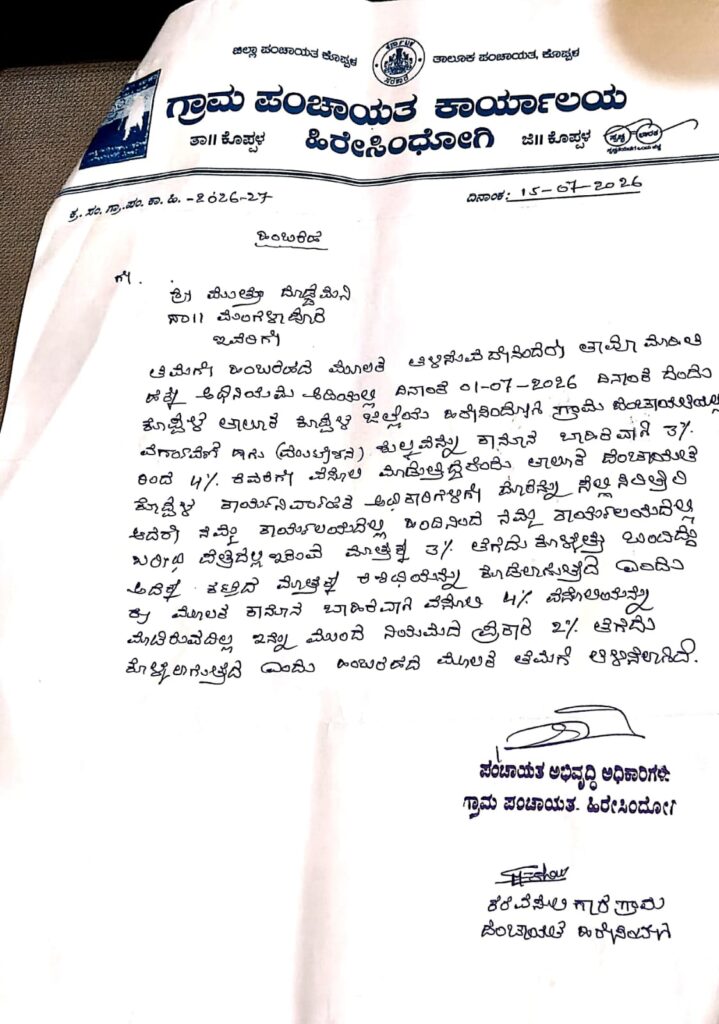 ಜಿಲ್ಲಾ ಪಂಚಾಯತ ಕೊಪ್ಪಳ ತಾಲೂಕ ಪಂಚಾಯತ, ಕೊಪ್ಪಳ
ಗ್ರಾಮ ಪಂಚಾಯತ ಕಾರ್ಯಾಲಯ
ತಾ॥ ಕೊಪ್ಪಳ ಹಿರೇಸಿಂಧೋಗಿ ಜಿ॥ ಕೊಪ್ಪಳ
ಕ್ರ. ಸಂ. ಗ್ರಾ. ಪಂ. ಕಾ. ಹಿ. -2026-27 ದಿನಾಂಕ: 15-07-2026
ಹಿಂಬರಹ
ಗೆ.
ಶ್ರೀ ದೊಡ್ಡಮನಿ
ಸಾ॥ ಮಂಗಳಾಪೂರ
ಇವರಿಗೆ
ತಮಗೆ ಹಿಂಬರಹದ ಮೂಲಕ ತಿಳಿಸುವದೇನೆಂದರೆ ತಾವು ಮಾಹಿತಿ
ಹಕ್ಕು ಅಧಿನಿಯಮ ಅಡಿಯಲ್ಲಿ ದಿನಾಂಕ 01-07-2026 ದಿನಾಂಕ ದಂದು
ಕೊಪ್ಪಳ ತಾಲೂಕ ಕೊಪ್ಪಳ ಜಿಲ್ಲೆಯ ಹಿರೇಸಿಂದೋಗಿ ಗ್ರಾಮ ಪಂಚಾಯತಿಯಲ್ಲಿ
ವರ್ಗಾವಣೆ ಹಾಗು ಶುಲ್ಕವನ್ನು ಕಾನೂನ ಬಾಹಿರವಾಗಿ 3%
ರಿಂದ 4% ವಸೂಲಿ ಮಾಡುತ್ತಿದ್ದಾರೆಂದು ತಾಲೂಕ ಪಂಚಾಯತ
ಕೊಪ್ಪಳ ಕಾರ್ಯನಿರ್ವಾಹಕ ಅಧಿಕಾರಿಗಳಿಗೆ ದೂರನ್ನು
ಆದರೆ ನಮ್ಮ ಕಾರ್ಯಾಲಯದಲ್ಲಿ ಹಿಂದಿನಿಂದ ನಮ್ಮ ಕಾರ್ಯಾಲಯದಲ್ಲಿ
ಖರೀದಿ ಪತ್ರದಲ್ಲಿ ಇರುವ ಮೊತ್ತಕ್ಕೆ 3% ತೆಗೆದು ಕೊಳ್ಳುತ್ತಾ ಬಂದಿದ್ದು
ಅದಕ್ಕೆ ಮೊತ್ತಕ್ಕೆ ರಶೀದಿಯನ್ನು ಕೊಡಲಾಗುತ್ತದೆ ಎಂದು
ಈ ಮೂಲಕ ಕಾನೂನ ಬಾಹಿರವಾಗಿ ವಸೂಲಿ 4% ವಸೂಲಿಯನ್ನು
ಮಾಡಿರುವದಿಲ್ಲ ಇನ್ನು ಮುಂದೆ ನಿಯಮದ ಪ್ರಕಾರ 2% ತೆಗೆದು
ಕೊಳ್ಳಲಾಗುತ್ತದೆ ಎಂದು ಹಿಂಬರಹದ ಮೂಲಕ ತಮಗೆ ತಿಳಿಸಲಾಗಿದೆ.
ಪಂಚಾಯತ ಅಭಿವೃದ್ಧಿ ಅಧಿಕಾರಿಗಳು
ಗ್ರಾಮ ಪಂಚಾಯತ- ಹಿರೇಸಿಂದೋಗಿ
ಕರವಸೂಲಿಗಾರ ಗ್ರಾಮ
ಪಂಚಾಯತ ಹಿರೇಸಿಂದೋಗಿ